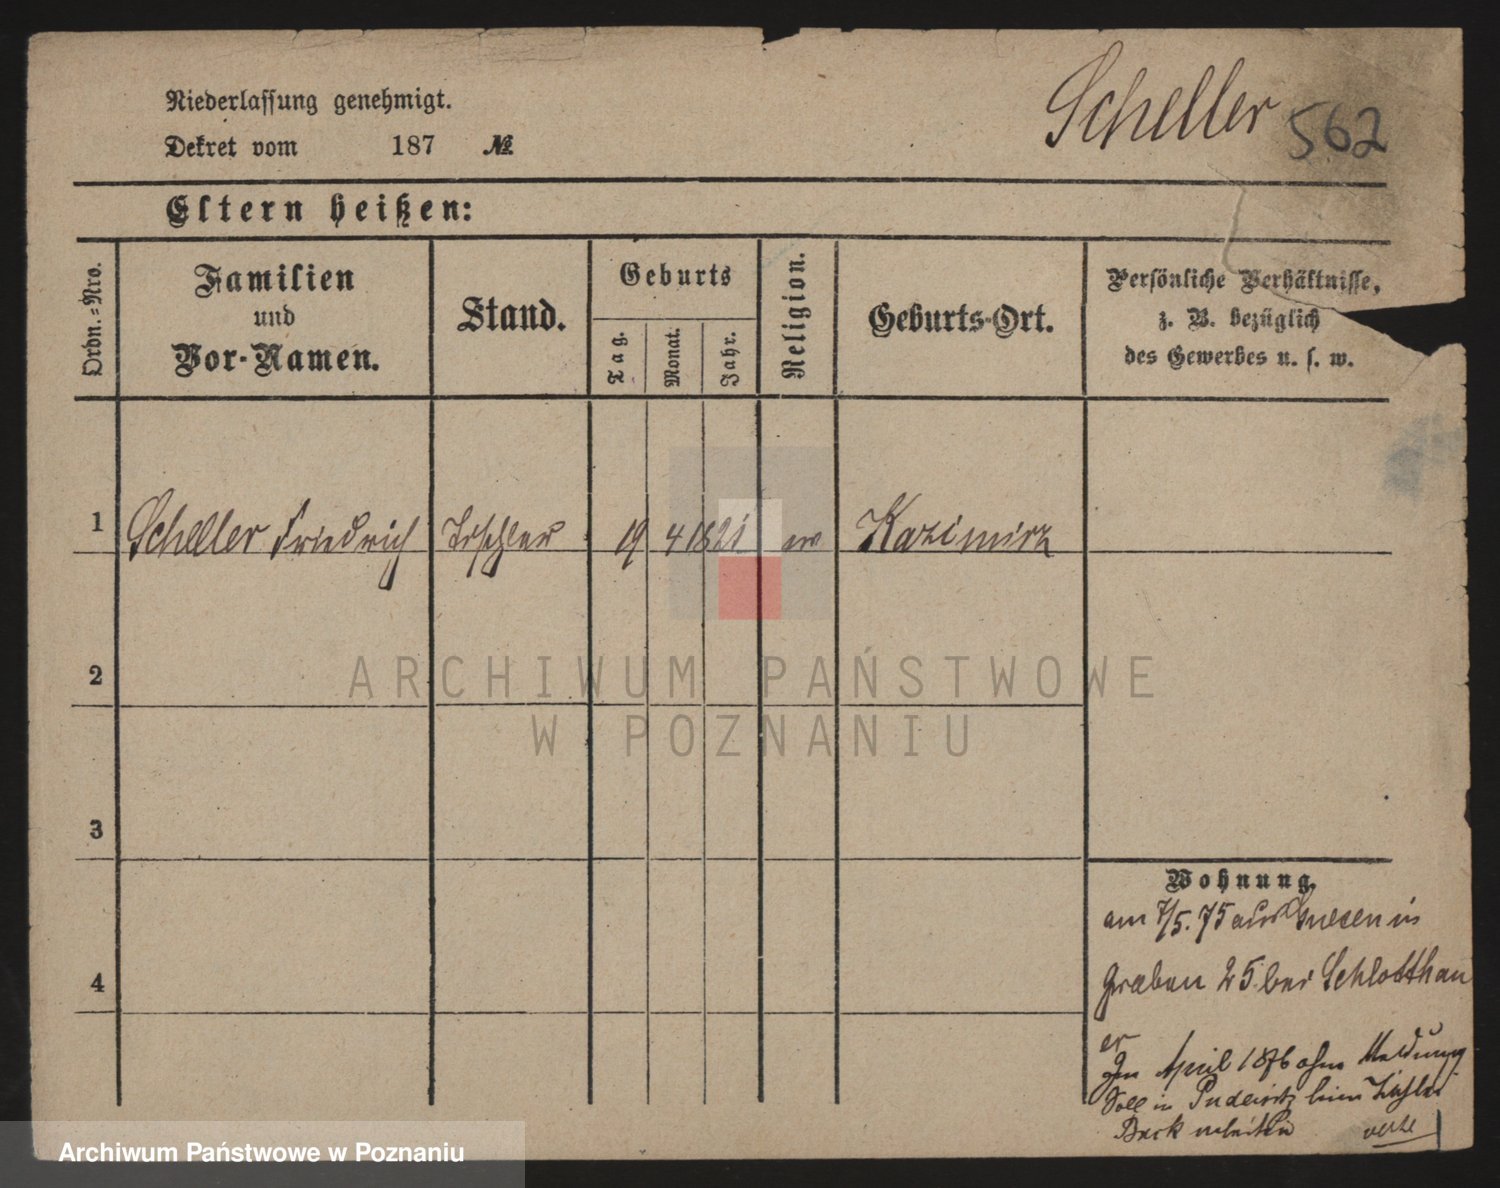 Niederlassung genehmigt.
Scheller 562
Dekret vom 187 №
Eltern heißen:
Ordn.-Nro.
Familien
und
Vor-Namen.
Stand.
Geburts
Tag.
Monat.
Jahr.
Religion.
Geburts-Ort.
Persönliche Verhältnisse,
z. B. bezüglich
des Gewerbes u. s. w.
1 Scheller Friedrich Tischler 19 4 1821 ev Kazimirz
2
ARCHIWUM PAŃSTWOWE
W POZNANIU
3
Wohnung.
am 7/5.75 aus Gnesen in
4
Graben 25 bei Schlotthau
er
Im April 1876 ohne Meldung
Soll in Pudewitz beim Tischler
Beck arbeiten
Archiwum Państwowe w Poznaniu